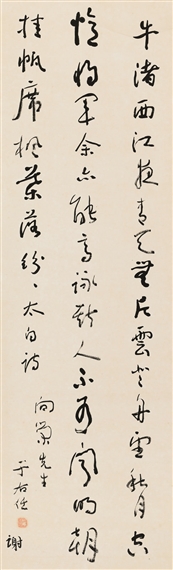 牛渚西江夜青天無片雲登舟望秋月空
憶將軍余亦能高詠斯人不可聞明朝
挂帆席楓葉落紛〻太白詩
先生
于右任
謝